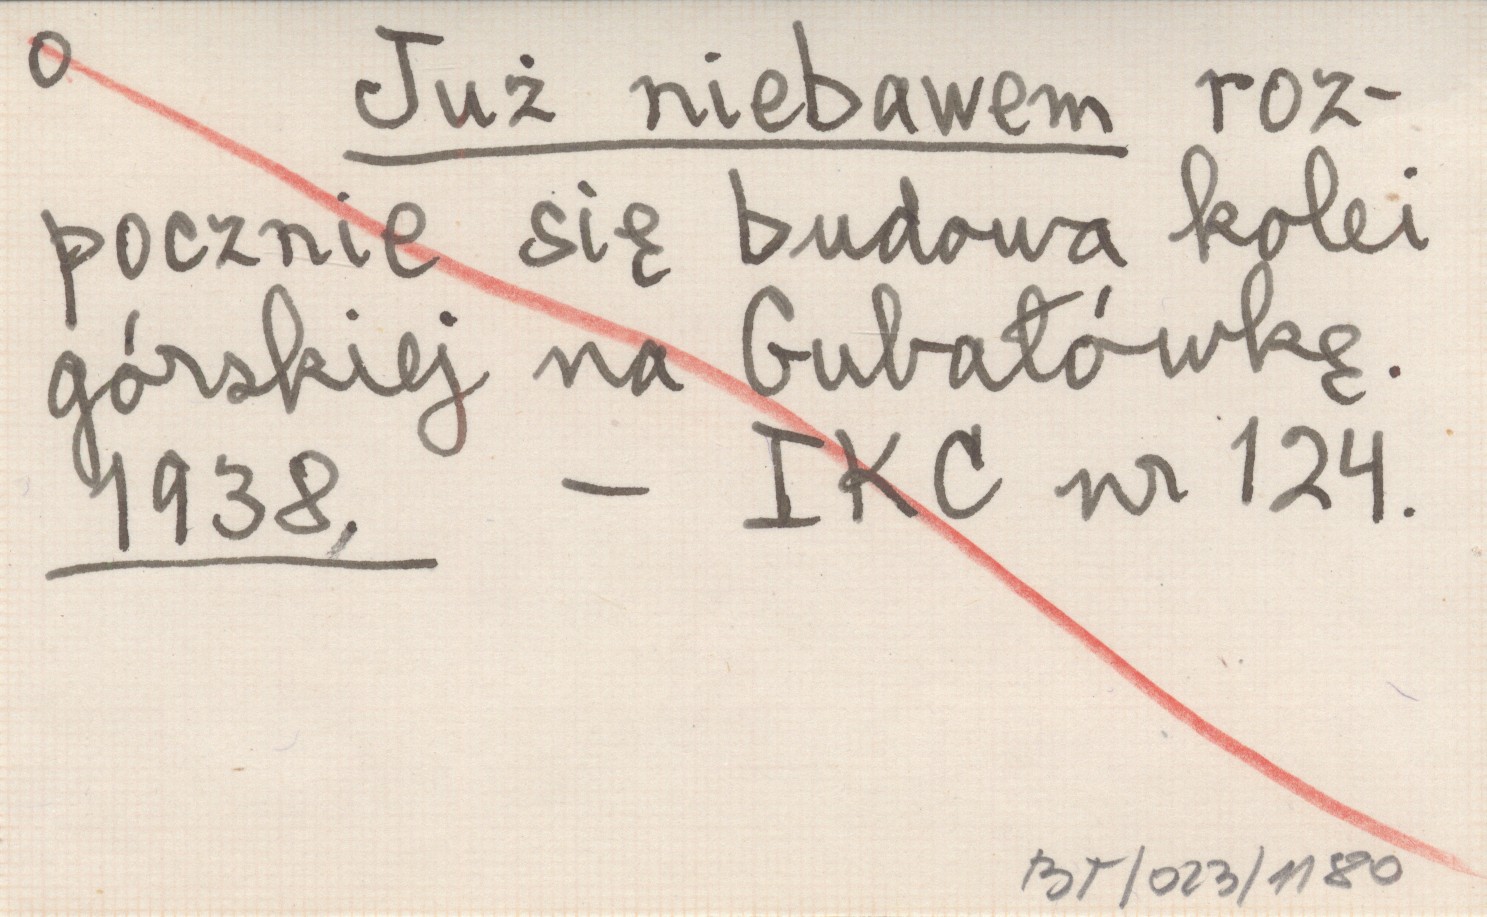 o Już niebawem roz-
pocznie się budowa kolei
górskiej na Gubałówkę.
1938, – IKC nr 124.
BT/023/1180